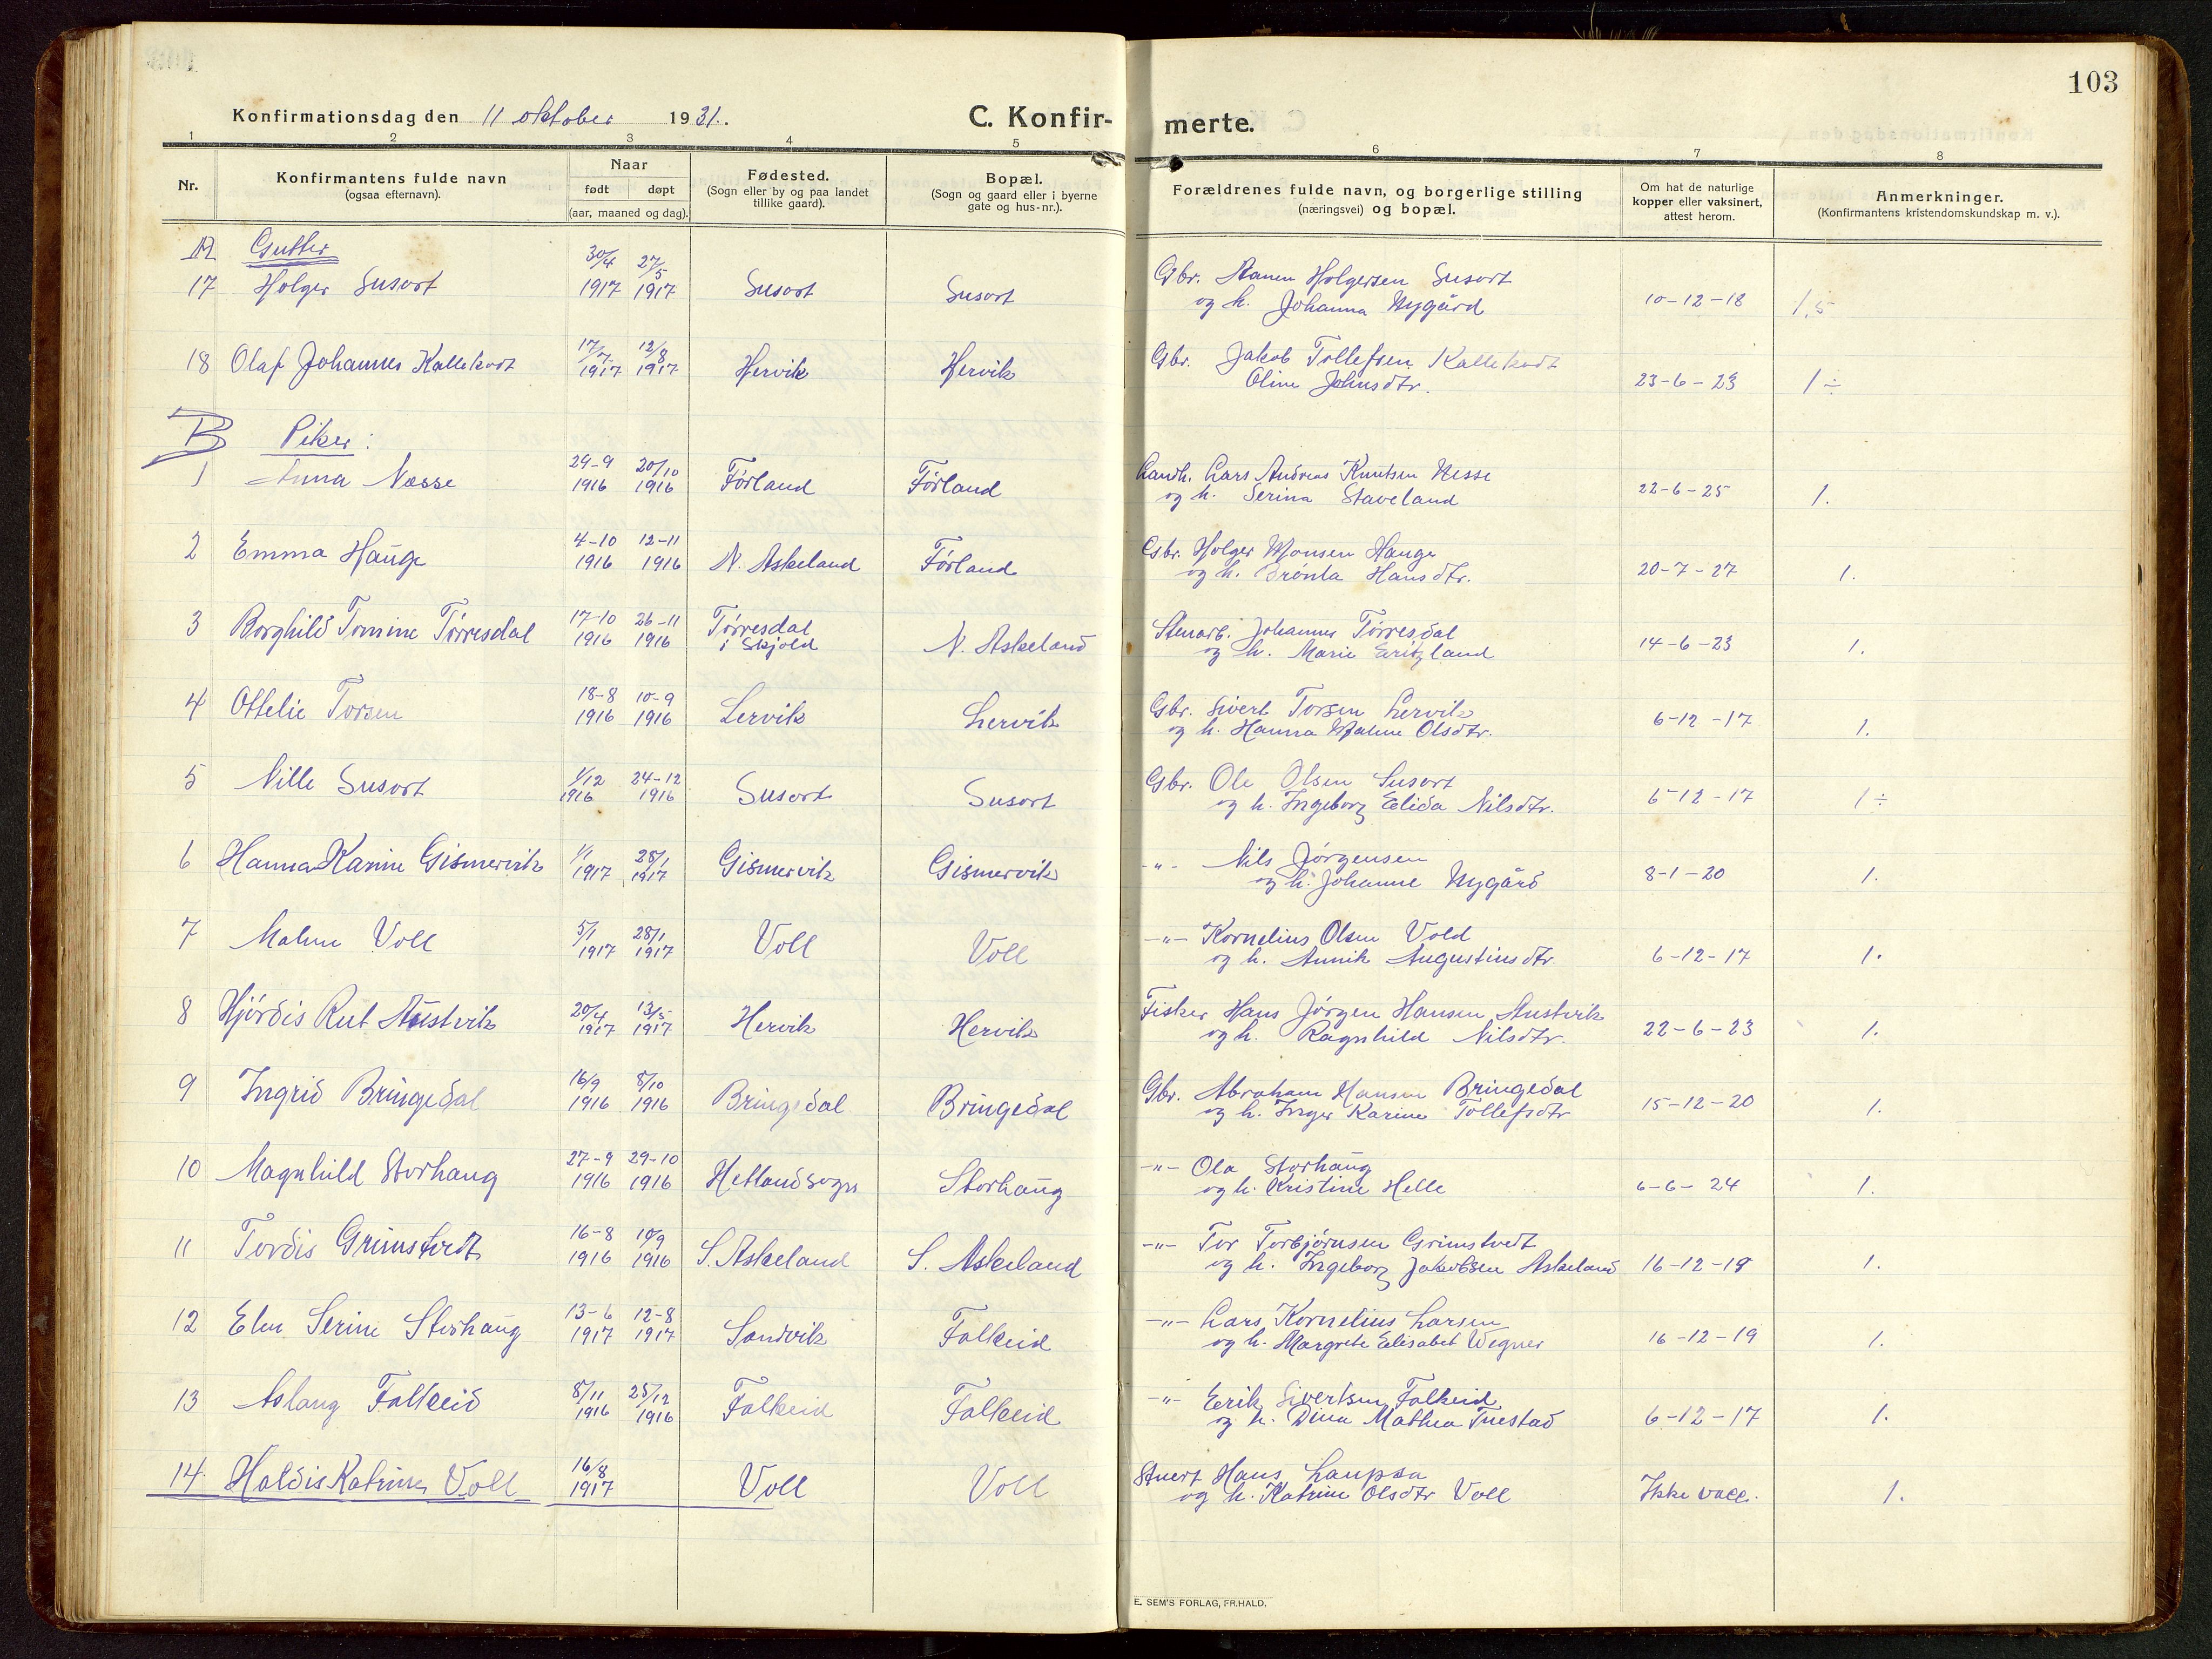 103
Konfirmationsdag den 11 oktober 1931.
C. Konfir-merte.
1 2 3 4 5 6 7 8
Nr.
Konfirmantens fulde navn
(ogsaa efternavn).
Naar
født døpt
(aar, maaned og dag).
Fødested.
(Sogn eller by og paa landet
tillike gaard).
Bopæl.
(Sogn og gaard eller i byerne
gate og hus-nr.).
Forældrenes fulde navn, og borgerlige stilling
(næringsvei) og bopæl.
Om hat de naturlige
kopper eller vaksinert,
attest herom.
Anmerkninger.
(Konfirmantens kristendomskundskap m. v.).
A Gutter
17 Holger Susort 30/4 1917 27/5 1917 Susort Susort Gbr. Aanen Holgersen Susort
og h. Johanna Nygård 10-12-18 1,5
18 Olaf Johannes Kallekodt 17/7 1917 12/8 1917 Hervik Hervik Gbr. Jakob Tollefsen Kallekodt
Oline Johnsdtr. 23-6-23 1 ÷
B Piker:
1 Anna Nesse 29-9 1916 20/10 1916 Førland Førland Landh. Lars Andreas Knutsen Nesse
og h. Serina Staveland 22-6-25 1.
2 Emma Hauge 4-10 1916 12-11 1916 N. Askeland Førland Gbr. Holger Monsen Hauge
og h. Brønla Hansdtr. 20-7-27 1.
3 Borghild Tomine Tørresdal 17-10 1916 26-11 1916 Tørresdal
i Skjold N. Askeland Stenarb. Johannes Tørresdal
og h. Marie Eritzland 14-6-23 1.
4 Ottelie Torsen 18-8 1916 10-9 1916 Lervik Lervik Gbr. Sivert Torsen Lervik
og h. Hanna Malene Olsdtr. 6-12-17 1.
5 Nille Susort 1/12 1916 24-12 1916 Susort Susort Gbr. Ole Olsen Susort
og h. Ingeborg Elida Nilsdtr. 6-12-17 1 ÷
6 Hanna Karine Gismervik 1/1 1917 28/1 1917 Gismervik Gismervik -"- Nils Jørgensen
og h. Johanne Nygård 8-1-20 1.
7 Malene Voll 5/1 1917 28/1 1917 Voll Voll -"- Kornelius Olsen Vold
og h. Annik Augustinsdtr. 6-12-17 1.
8 Hjørdis Rut Austvik 20/4 1917 13/5 1917 Hervik Hervik Fisker Hans Jørgen Hansen Austvik
og h. Ragnhild Nilsdtr. 22-6-23 1.
9 Ingrid Bringedal 16/9 1916 8/10 1916 Bringedal Bringedal Gbr. Abraham Hansen Bringedal
og h. Inger Karine Tollefsdtr 15-12-20 1.
10 Magnhild Storhaug 27-9 1916 29-10 1916 Hetlandsogn Storhaug -"- Ola Storhaug
og h. Kristine Helle 6-6-24 1.
11 Tordis Grimstvedt 16-8 1916 10/9 1916 S. Askeland S. Askeland -"- Tor Torbjørnsen Grimstvedt
og h. Ingeborg Jakobsen Askeland 16-12-19 1.
12 Elen Serine Storhaug 13-6 1917 12-8 1917 Sandvik Falkeid -"- Lars Kornelius Larsen
og h. Margrete Elisabet Wegner 16-12-19 1.
13 Aslaug Falkeid 8/11 1916 25/12 1916 Falkeid Falkeid -"- Erik Sivertsen Falkeid
og h. Dina Mathea Tuestad 6-12-17 1.
14 Haldis Katrine Voll 16/8 1917 Voll Voll Stuert Hans Laupsa
og h. Katrine Olsdtr Voll Ikke vacc. 1.
E. SEM'S FORLAG, FR.HALD.